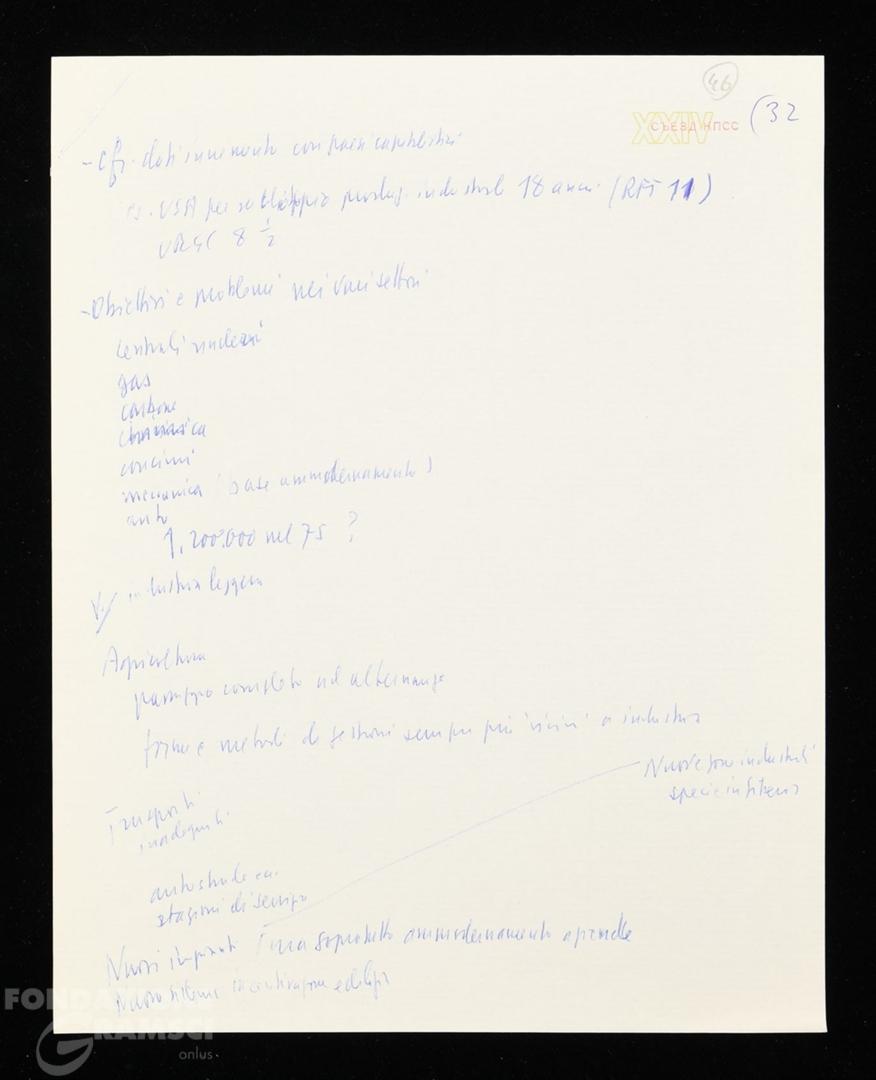 46
XXIV СЪЕЗД КПСС
(32
- Cfr. dati incremento con paesi capitalistici
es. USA per produz. industriale 18 anni (RFT 11)
URSS 8 1/2
- Obiettivi e problemi nei vari settori
centrali nucleari
gas
carbone
chimica
concimi
meccanica (base ammodernamento)
auto
1.200.000 nel 75 ?
industria leggera
Agricoltura
passaggio completo ad
forme e metodi di gestione sempre più vicini a industria
Nuove zone industriali
specie in Siberia
Trasporti
inadeguati
autostrade ecc.
stazioni di servizio
Nuovi impianti ma soprattutto ammodernamento aziende
Nuovo sistema incentivazione edilizia
FONDAZIONE
GRAMSCI
onlus